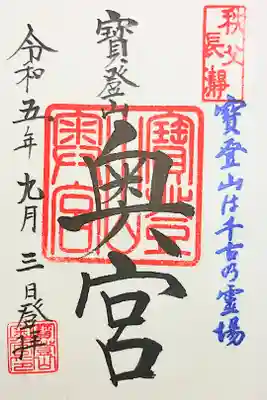 秩父
長瀞
寶登山は千古乃霊場
寶登山
奥宮
寶登山
奥宮
令和五年九月三日登拝